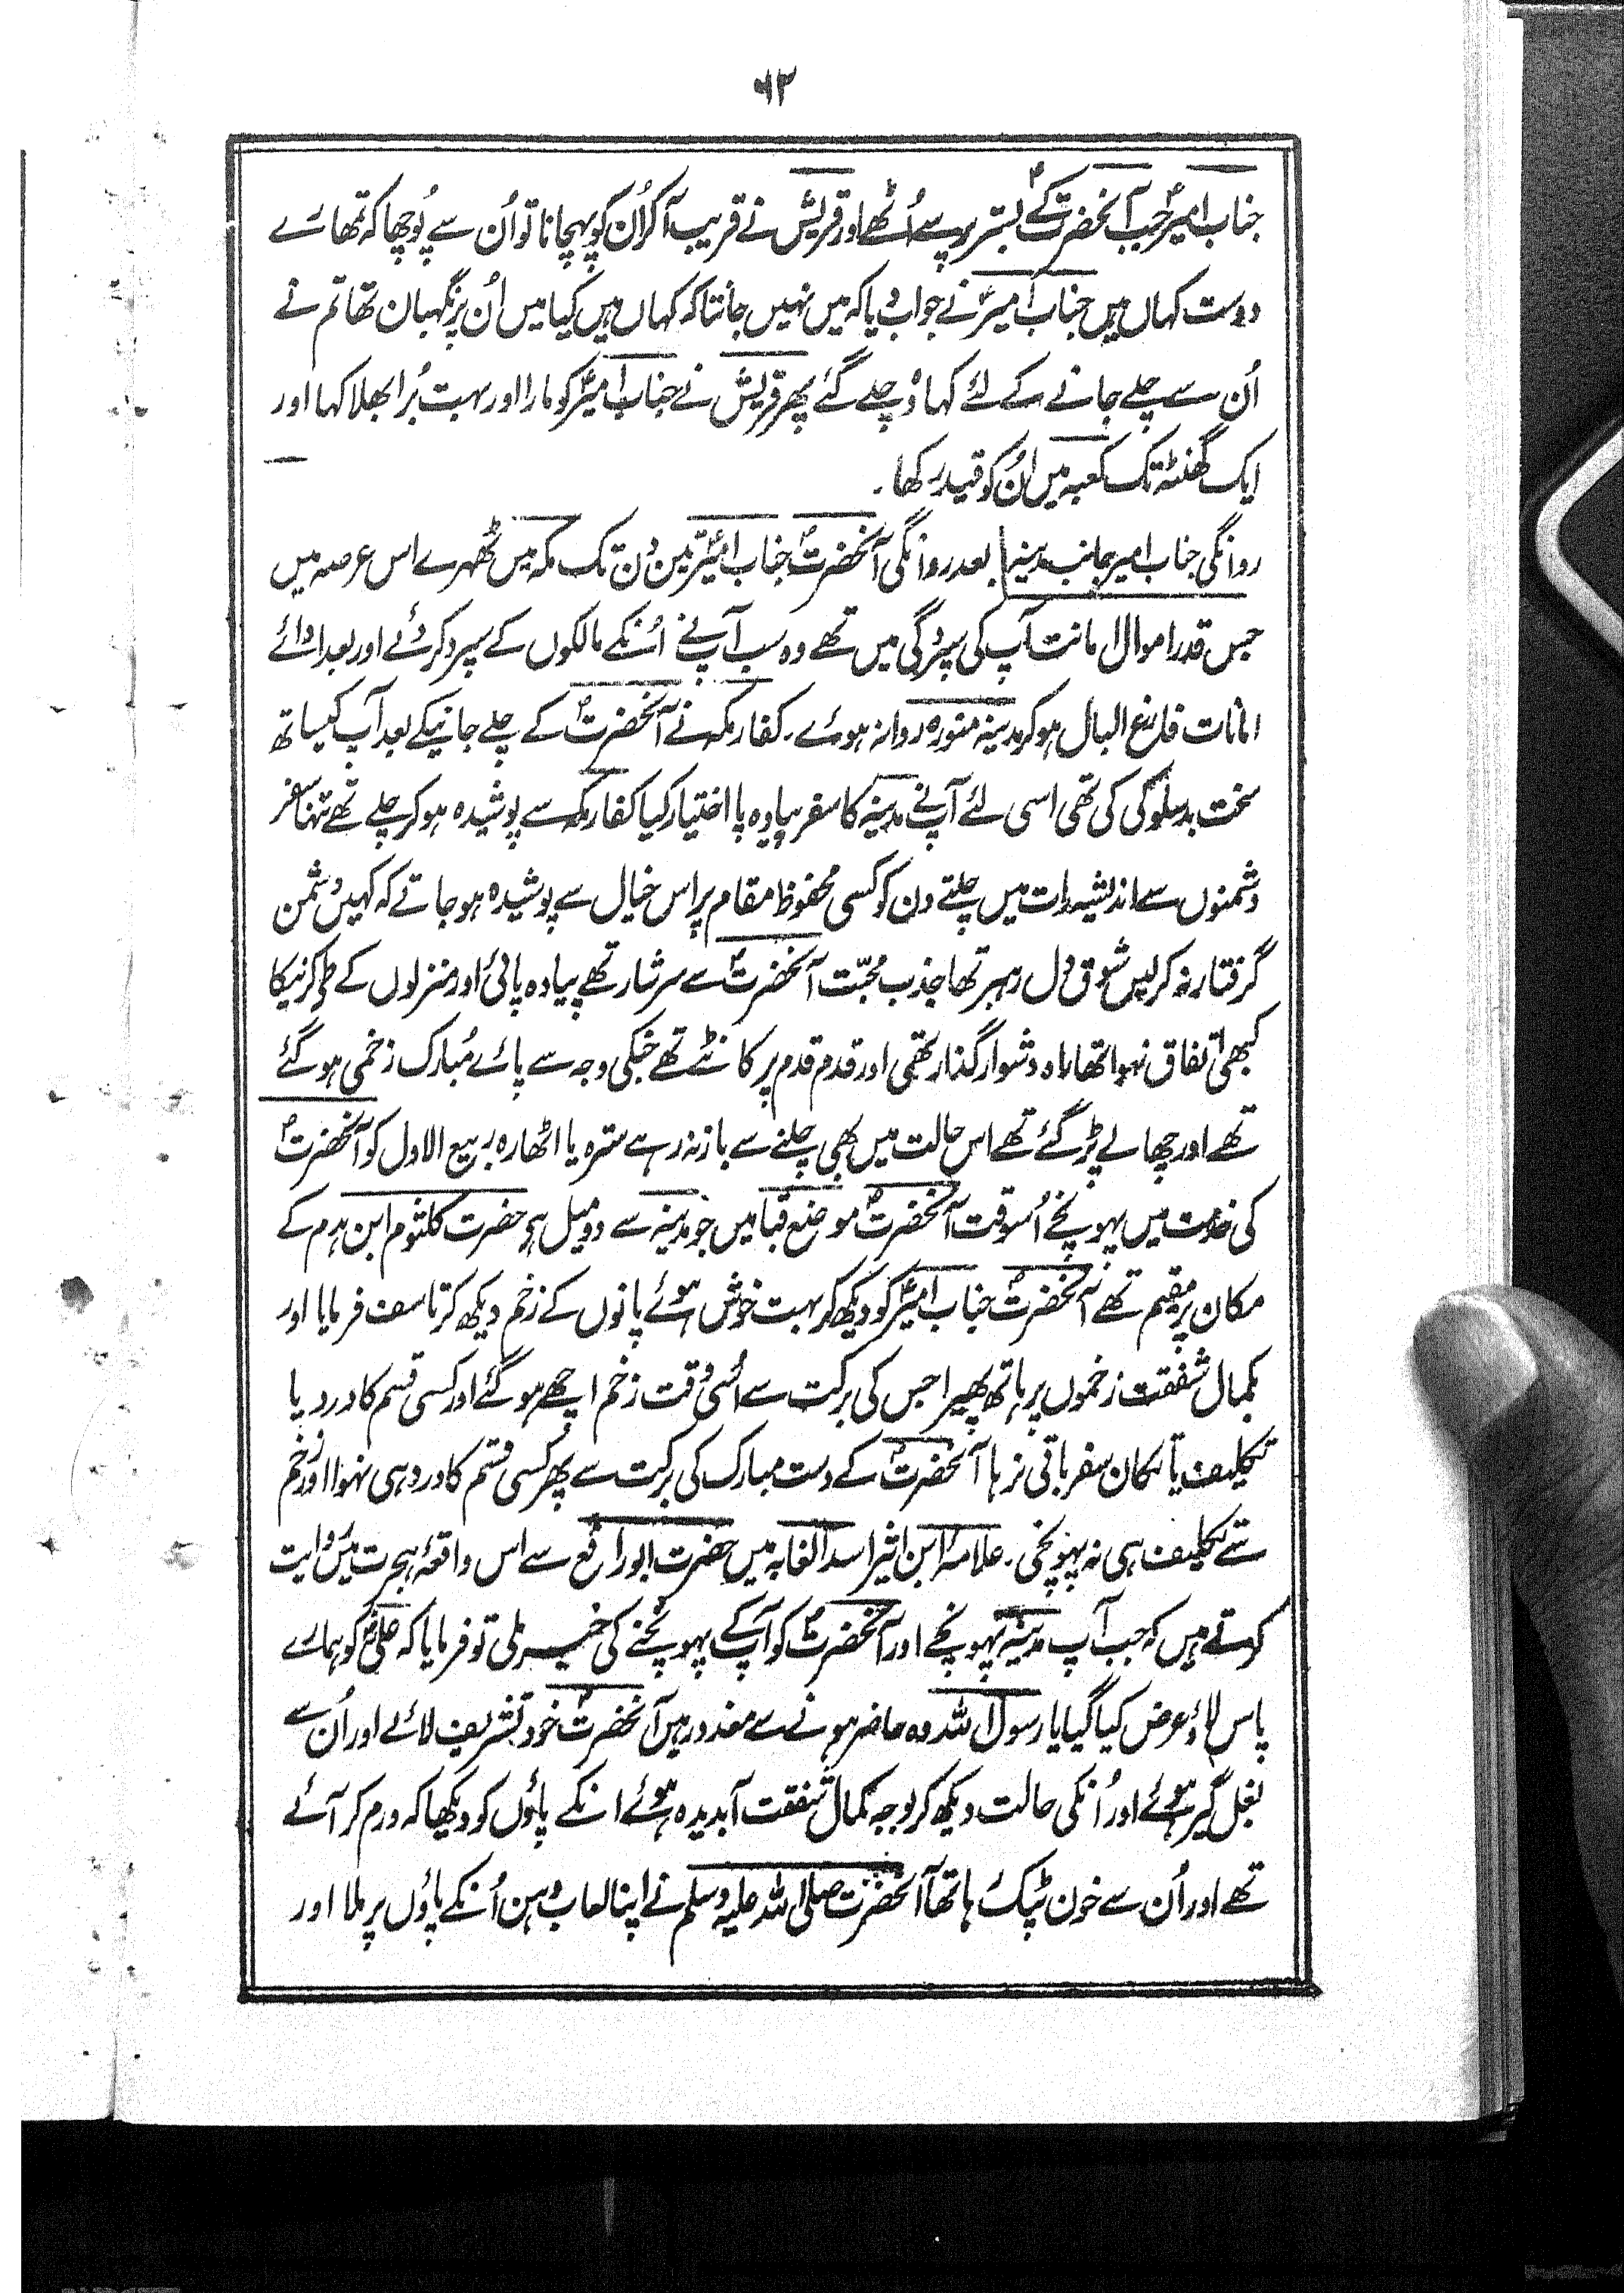 ۶۳
جناب امیرؑ جب آنحضرتؐ کے بستر پر سے اُٹھے اور قریش نے قریب آکر اُن کو پہچانا تو اُن سے پُوچھا کہ تمھارے
دوست کہاں ہیں جناب امیرؑ نے جواب دیا کہ میں نہیں جانتا کہ کہاں ہیں کیا میں اُن پر نگہبان تھا تم نے
اُن سے چلے جانے کے لئے کہا وُہ چلے گئے پھر قریش نے جناب امیرؑ کو مارا اور بہت بُرا بھلا کہا اور
ایک گھنٹہ تک کعبہ میں اُن کو قید رکھا۔
روانگی جناب امیر بجانب مدینہ بعد روانگی آنحضرتؐ جناب امیرؑ تین دن تک مکہ میں ٹھہرے اس عرصہ میں
جس قدر اموال امانت آپ کی سپردگی میں تھے وہ سب آپنے اُنکے مالکوں کے سپرد کردئے اور بعد ادائے
امانات فارغ البال ہو کر مدینہ منورہ روانہ ہوئے۔ کفار مکہ نے آنحضرتؐ کے چلے جانیکے بعد آپ کیساتھ
سخت بدسلوکی کی تھی اسی لئے آپنے مدینہ کا سفر پیادہ پا اختیار کیا کفار مکہ سے پوشیدہ ہو کر چلے تھے تنہا سفر
دشمنوں سے اندیشہ رات میں چلتے دن کو کسی محفوظ مقام پر اس خیال سے پوشیدہ ہو جاتے کہ کہیں دشمن
گرفتار نہ کرلیں شوق دل رہبر تھا جذب محبّت آنحضرتؐ سے سرشار تھے پیادہ پائی اور منزلوں کے طے کرنیکا
کبھی اتفاق نہوا تھا راہ دشوار گذار تھی اور قدم قدم پر کانٹے تھے جنکی وجہ سے پائے مُبارک زخمی ہو گئے
تھے اور چھالے پڑ گئے تھے اس حالت میں بھی چلنے سے باز نہ رہے سترہ یا اٹھارہ ربیع الاول کو آنحضرتؐ
کی خدمت میں پہونچے اُسوقت آنحضرتؐ موضع قبا میں جو مدینہ سے دو میل ہے حضرت کلثوم ابن ہدم کے
مکان پر مقیم تھے آنحضرتؐ جناب امیرؑ کو دیکھ کر بہت خوش ہوئے پانوں کے زخم دیکھ کر تاسف فرمایا اور
بکمال شفقت زخموں پر ہاتھ پھیرا جس کی برکت سے اُسی وقت زخم اچھے ہو گئے اور کسی قسم کا درد یا
تکلیف یا تکان سفر باقی نہ رہا آنحضرتؐ کے دست مبارک کی برکت سے پھر کسی قسم کا درد ہی نہوا اور زخم
سے تکلیف ہی نہ پہونچی۔ علامہ ابن اثیر اسد الغابہ میں حضرت ابو رافع سے اس واقعۂ ہجرت میں روایت
کرتے ہیں کہ جب آپ مدینہ پہونچے اور آنحضرتؐ کو آپکے پہونچنے کی خبر ملی تو فرمایا کہ علیؑ کو ہمارے
پاس لاؤ عرض کیا گیا یا رسول اللہ وہ حاضر ہونے سے معذور ہیں آنحضرتؐ خود تشریف لائے اور اُن سے
بغل گیر ہوئے اور اُنکی حالت دیکھ کر بوجہ کمال شفقت آبدیدہ ہوئے انکے پاؤں کو دیکھا کہ ورم کر آئے
تھے اور اُن سے خون ٹپک رہا تھا آنحضرت صلی اللہ علیہ وسلم نے اپنا لعاب دہن اُنکے پاؤں پر ملا اور